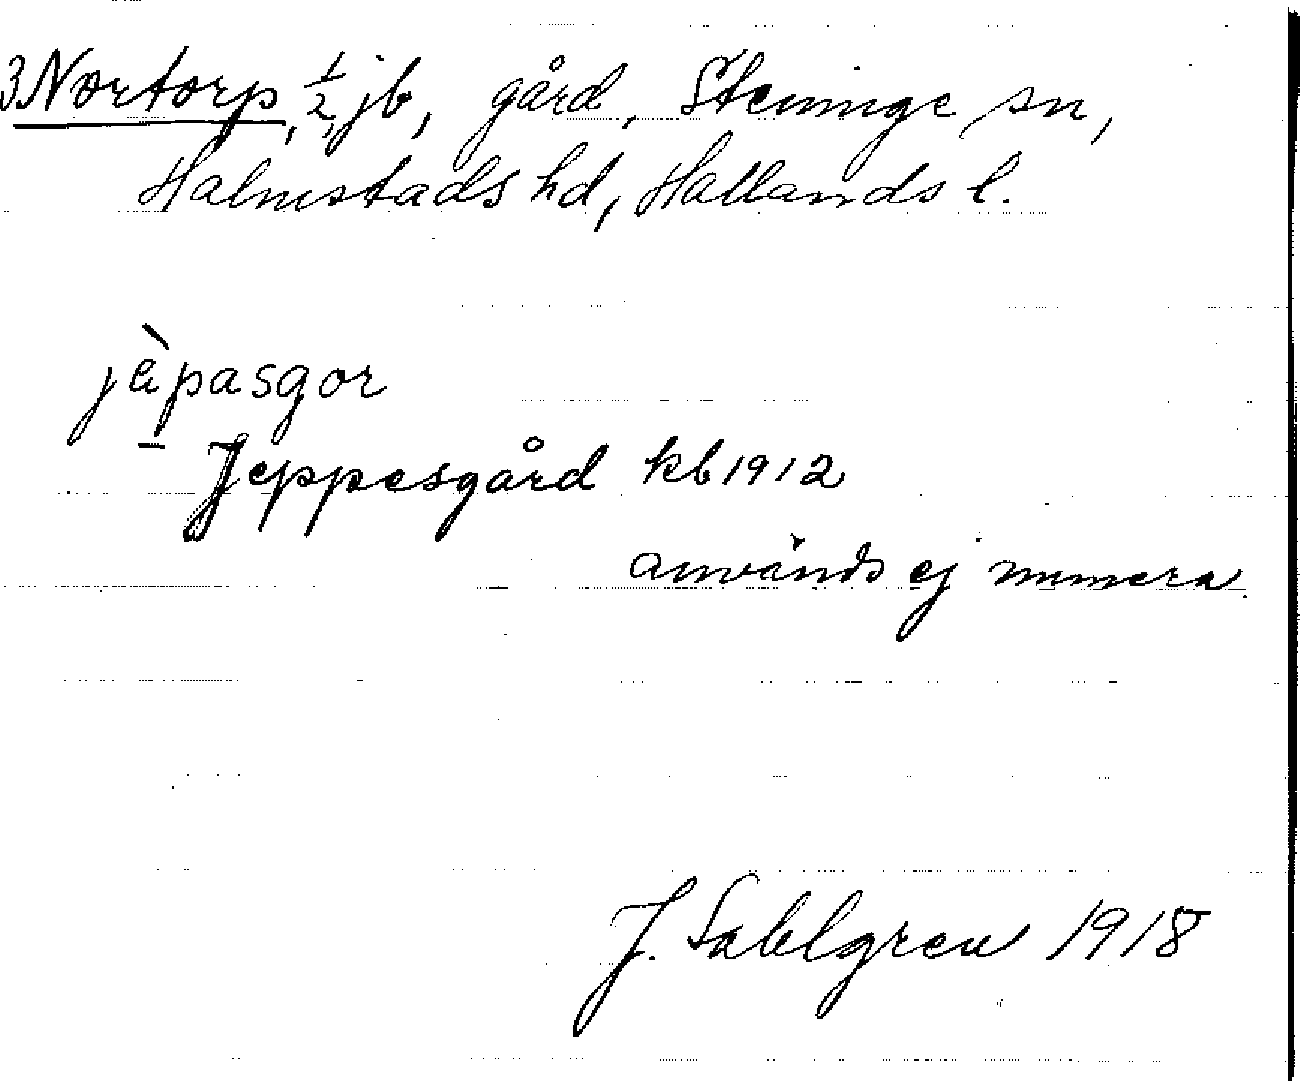 3 Nortorp, 1/2 jb, gård, Steninge sn,
Halmstads hd, Hallands l.
jäpasgor
Jeppesgård kb 1912
används ej numera.
J. Sahlgren 1918